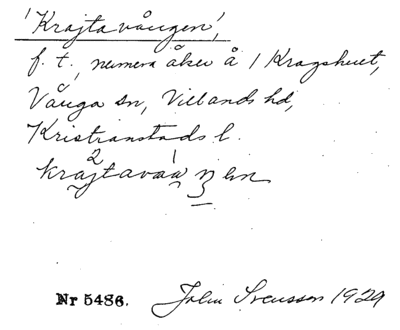 'Krajtavången',
f. t., numera åker å 1 Kragshuet,
Vånga sn, Villands hd,
Kristianstads l.
Nr 5486. John Svensson 1929